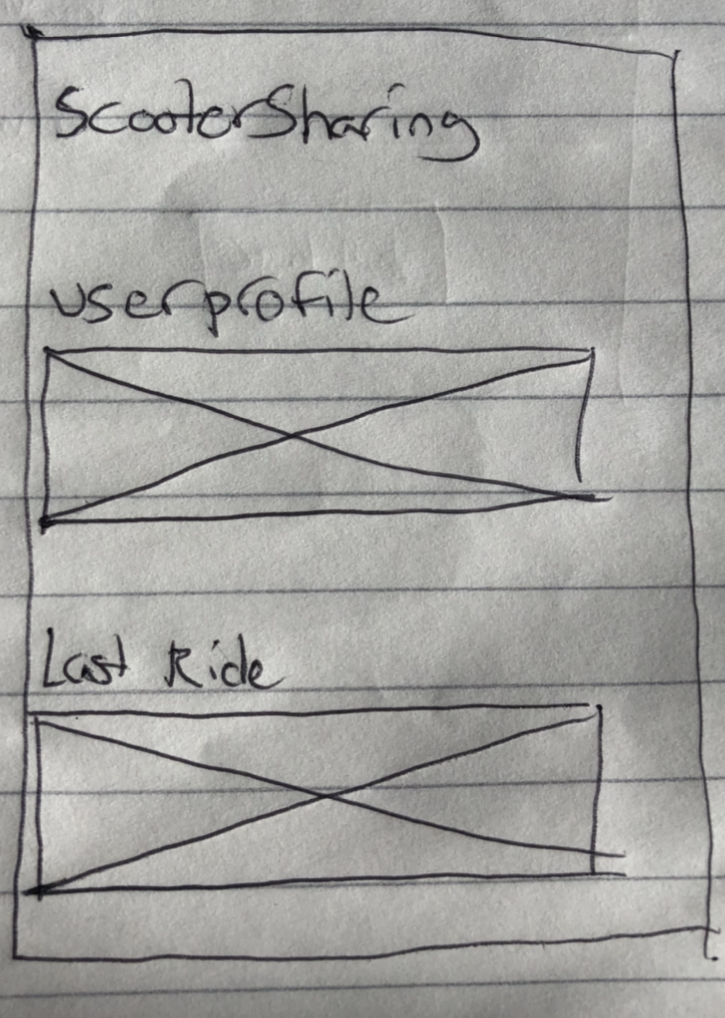 ScooterSharing
userprofile
Last Ride